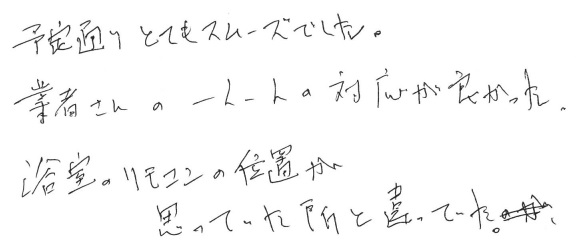 予定通りとてもスムーズでした。
業者さんの一人一人の対応が良かった。
浴室のリモコンの位置が
思っていた所と違っていた。